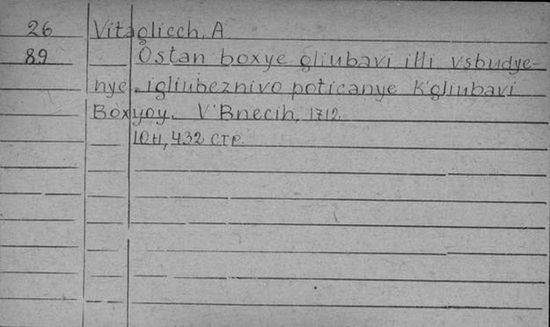 26 Vitagliech, A
89 Ostan boxye gliubavi illi vsbudye-
nye. igliubeznivo poticanye K'gliubavi
Boxyoy. V'Bnecih, 1712.
10н, 432 стр.